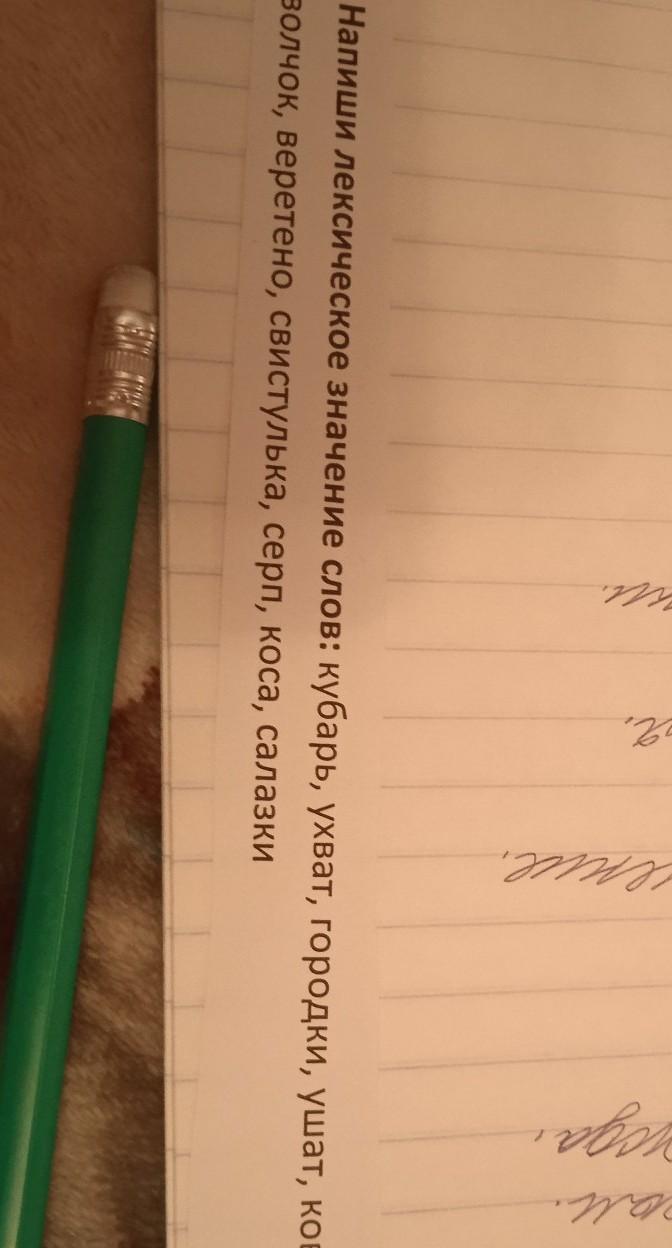 Напиши лексическое значение слов: кубарь, ухват, городки, ушат,
волчок, веретено, свистулька, серп, коса, салазки